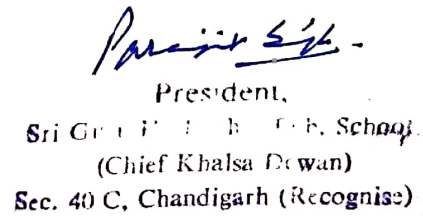 President,
Sri School
(Chief Khalsa Dewan)
Sec. 40 C, Chandigarh (Recognise)